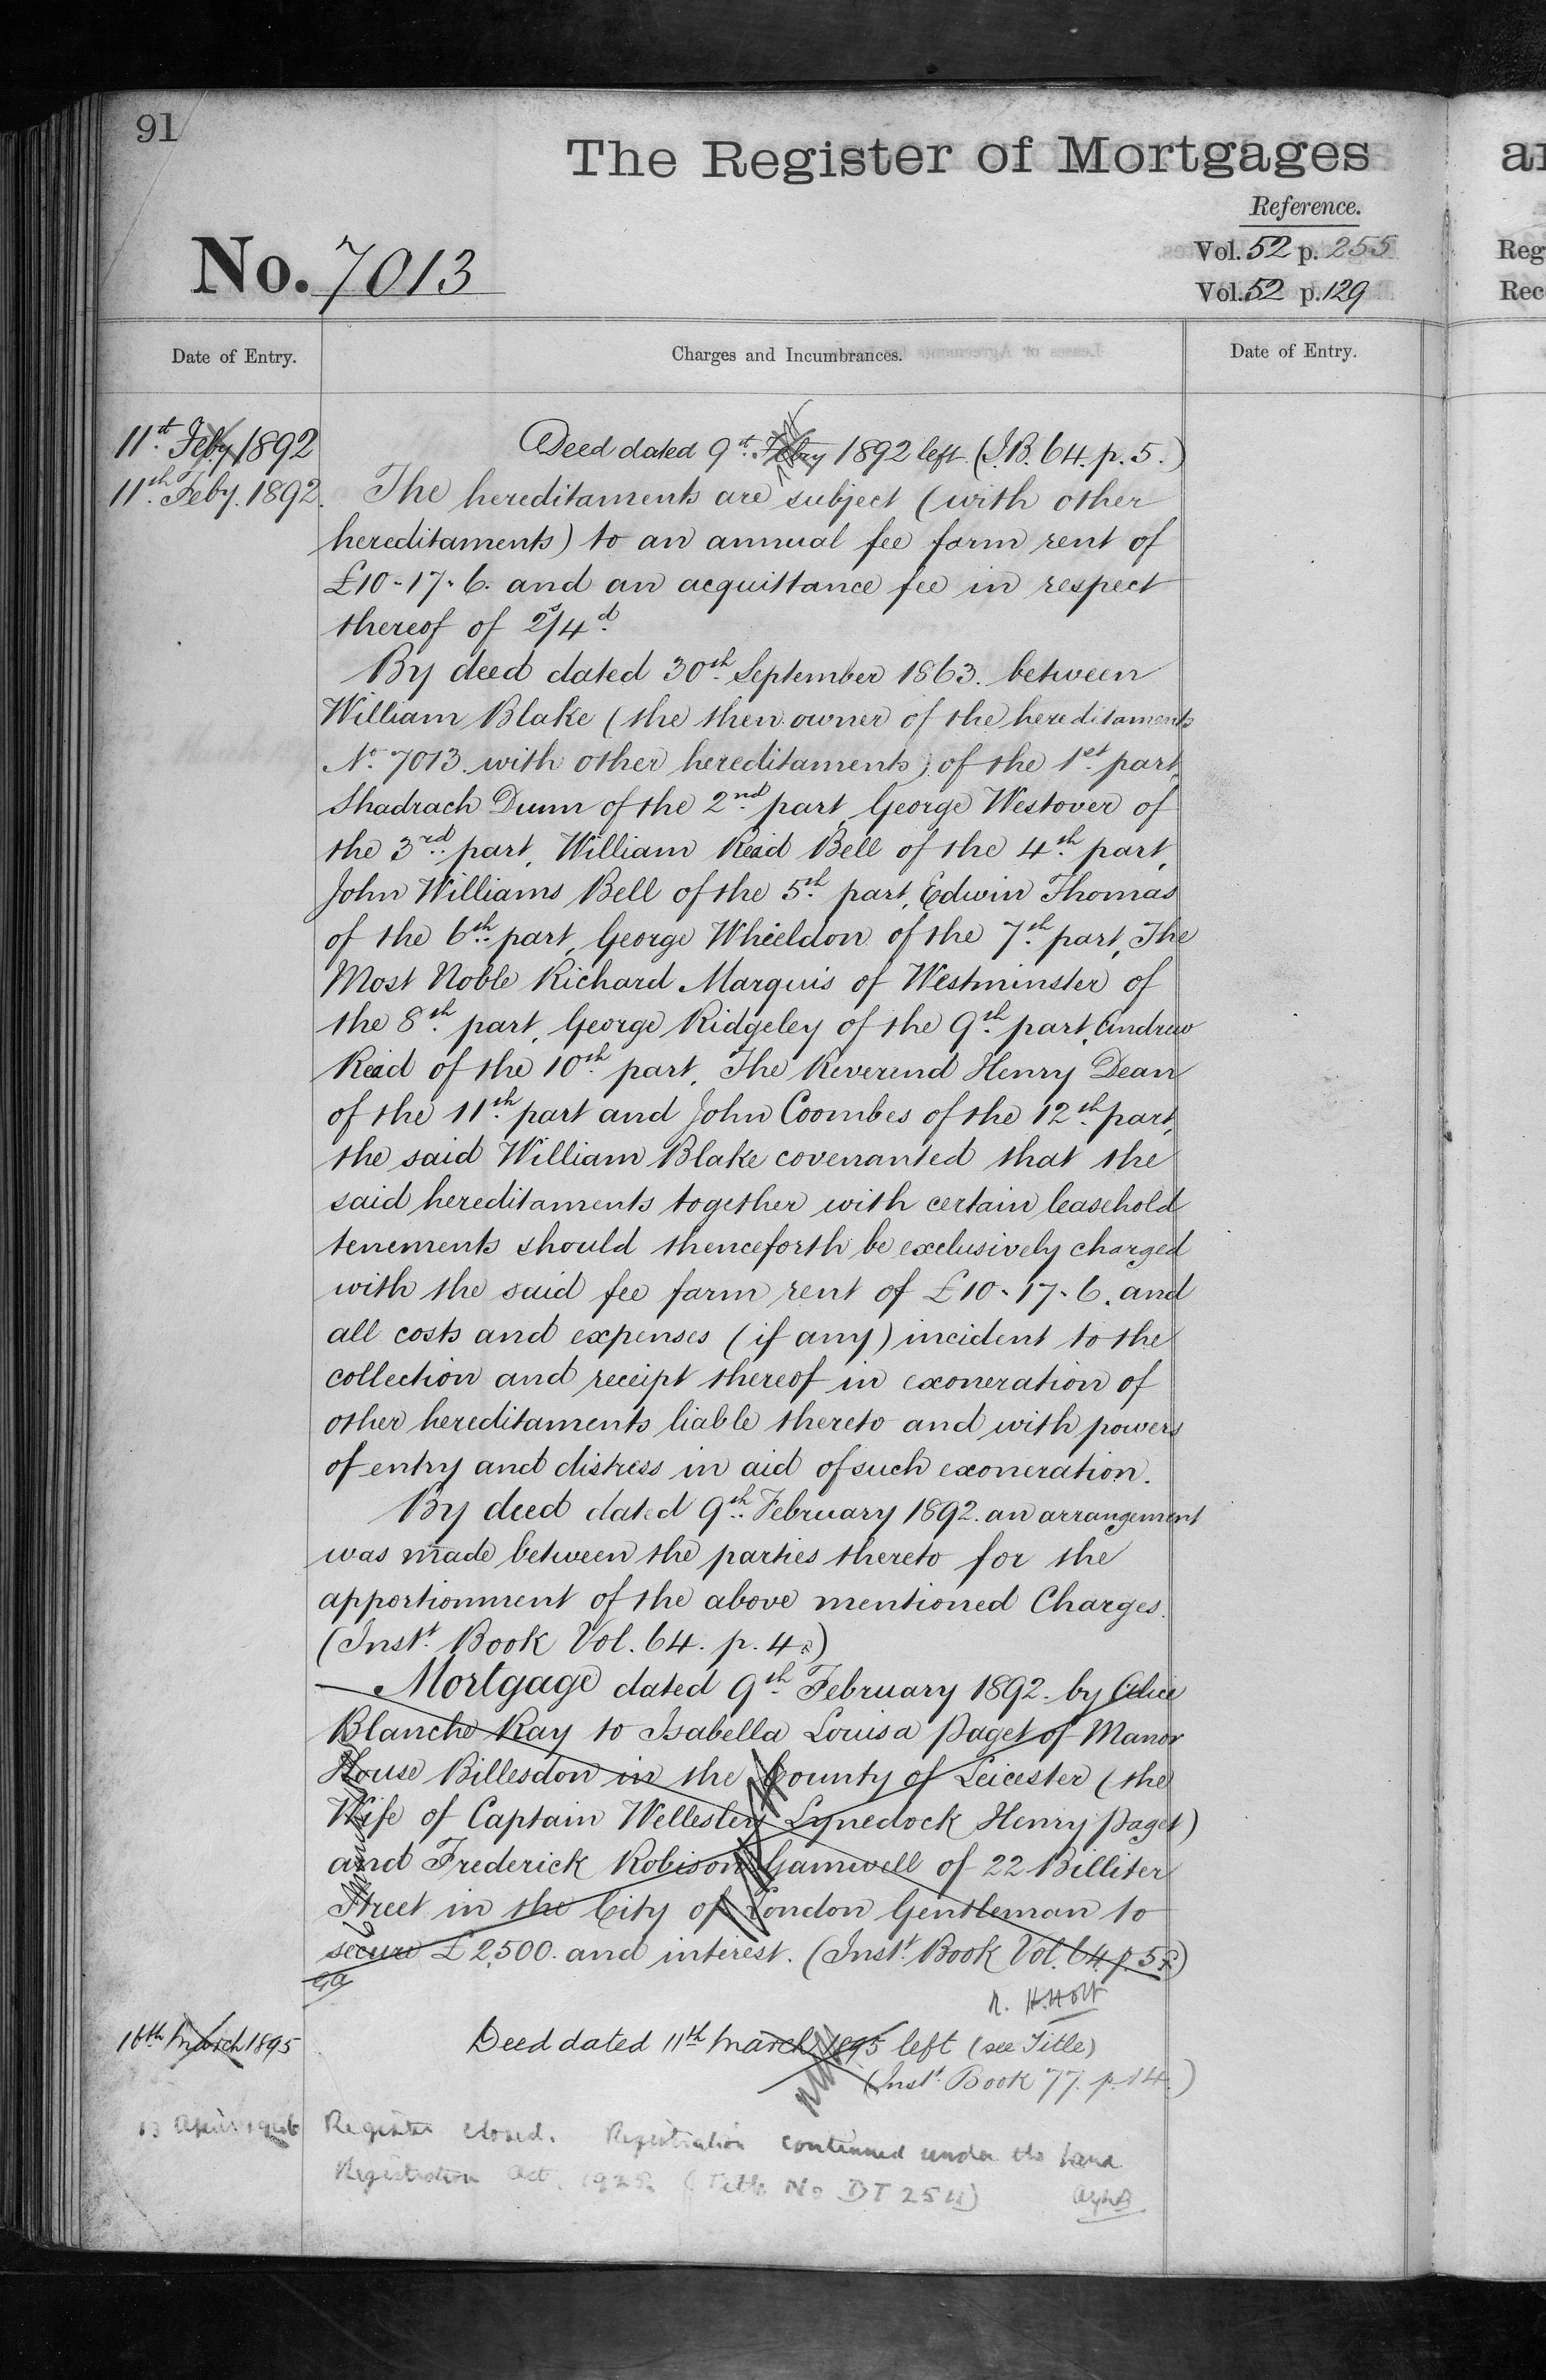 91
The Register of Mortgages
Reference.
Vol. 52 p. 255
No. 7013
Vol. 52 p. 129
Date of Entry.
Charges and Incumbrances.
Date of Entry.
11st Feby 1892
Deed dated 9st Febry 1892 left (I.B. 64. p. 5.)
11th Feby. 1892.
The hereditaments are subject (with other
hereditaments) to an annual fee farm rent of
£10-17-6. and an acquittance fee in respect
thereof of 2s/4d
By deed dated 30th September 1863. between
William Blake (the then owner of the hereditaments
No. 7013. with other hereditaments) of the 1st part,
Shadrach Dunn of the 2nd part, George Westover of
the 3rd part, William Reid Bell of the 4th part,
John Williams Bell of the 5th part, Edwin Thomas
of the 6th part, George Wheeldon of the 7th part, The
Most Noble Richard Marquis of Westminster of
the 8th part, George Ridgeley of the 9th part, Andrew
Reid of the 10th part, The Reverend Henry Dean
of the 11th part and John Coombes of the 12th part,
the said William Blake covenanted that the
said hereditaments together with certain leasehold
tenements should thenceforth be exclusively charged
with the said fee farm rent of £10-17-6. and
all costs and expenses (if any) incident to the
collection and receipt thereof in exoneration of
other hereditaments liable thereto and with powers
of entry and distress in aid of such exoneration.
By deed dated 9th February 1892. an arrangement
was made between the parties thereto for the
apportionment of the above mentioned Charges.
(Instt. Book Vol. 64. p. 4.)
Mortgage dated 9th February 1892. by Alice
Blanche Kay to Isabella Louisa Paget of Manor
House Billesdon in the County of Leicester (the
Wife of Captain Wellesley Lynedock Henry Paget)
and Frederick Robison Gamwell of 22 Billiter
Street in the City of London Gentleman to
secure £2,500. and interest. (Instt. Book Vol. 64. p. 5.)
R. H. Holt
16th March 1895
Deed dated 11th March 1895 left (see Title)
(Instt. Book 77. p. 14.)
13 April
Register closed. Registration continued under the Land
Registration Act, 1925. (Title No DT 254)